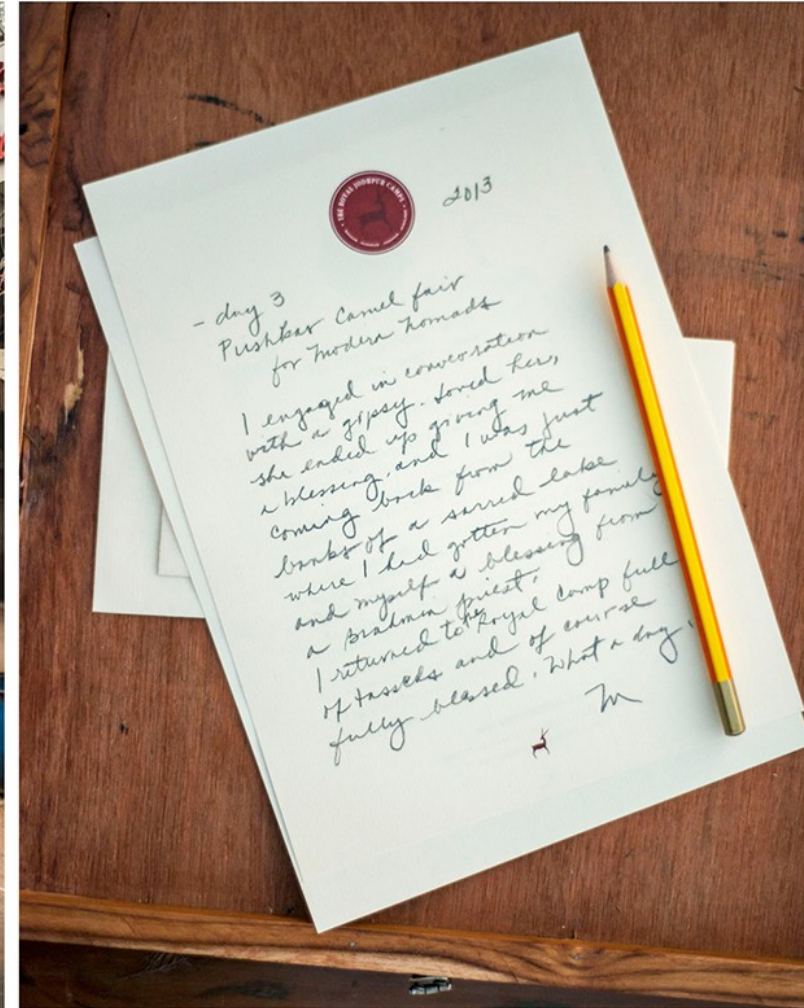 THE ROYAL JODHPUR CAMPS
2013
- day 3
Pushkar Camel fair
for modern nomads
I engaged in conversation
with a gipsy. Loved her,
she ended up giving me
a blessing, and I was just
coming back from the
banks of a sacred lake
where I had gotten my family
and myself a blessing from
a Brahmin priest.
I returned to the Royal Camp full
of tassels and of course
fully blessed. What a day.
M